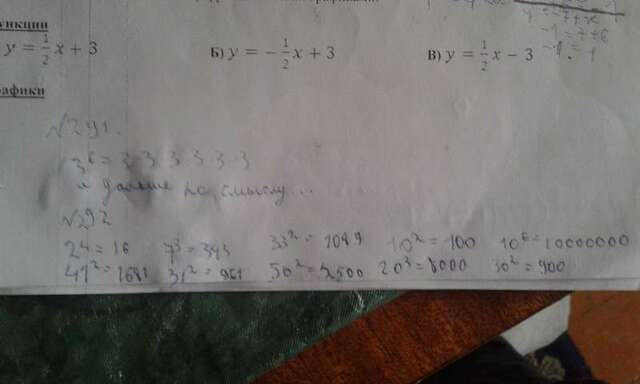 ункции
y = 1/2 x + 3 Б) y = -1/2 x + 3 В) y = 1/2 x - 3
-1 = 7 + 6
рафики
№291.
3⁶ = 3·3·3·3·3·3
и дальше по смыслу...
№292
2⁴ = 16 7³ = 343 33² = 1089 10² = 100 10⁶ = 10000000
41² = 1681 31² = 961 50² = 2500 20³ = 8000 30² = 900